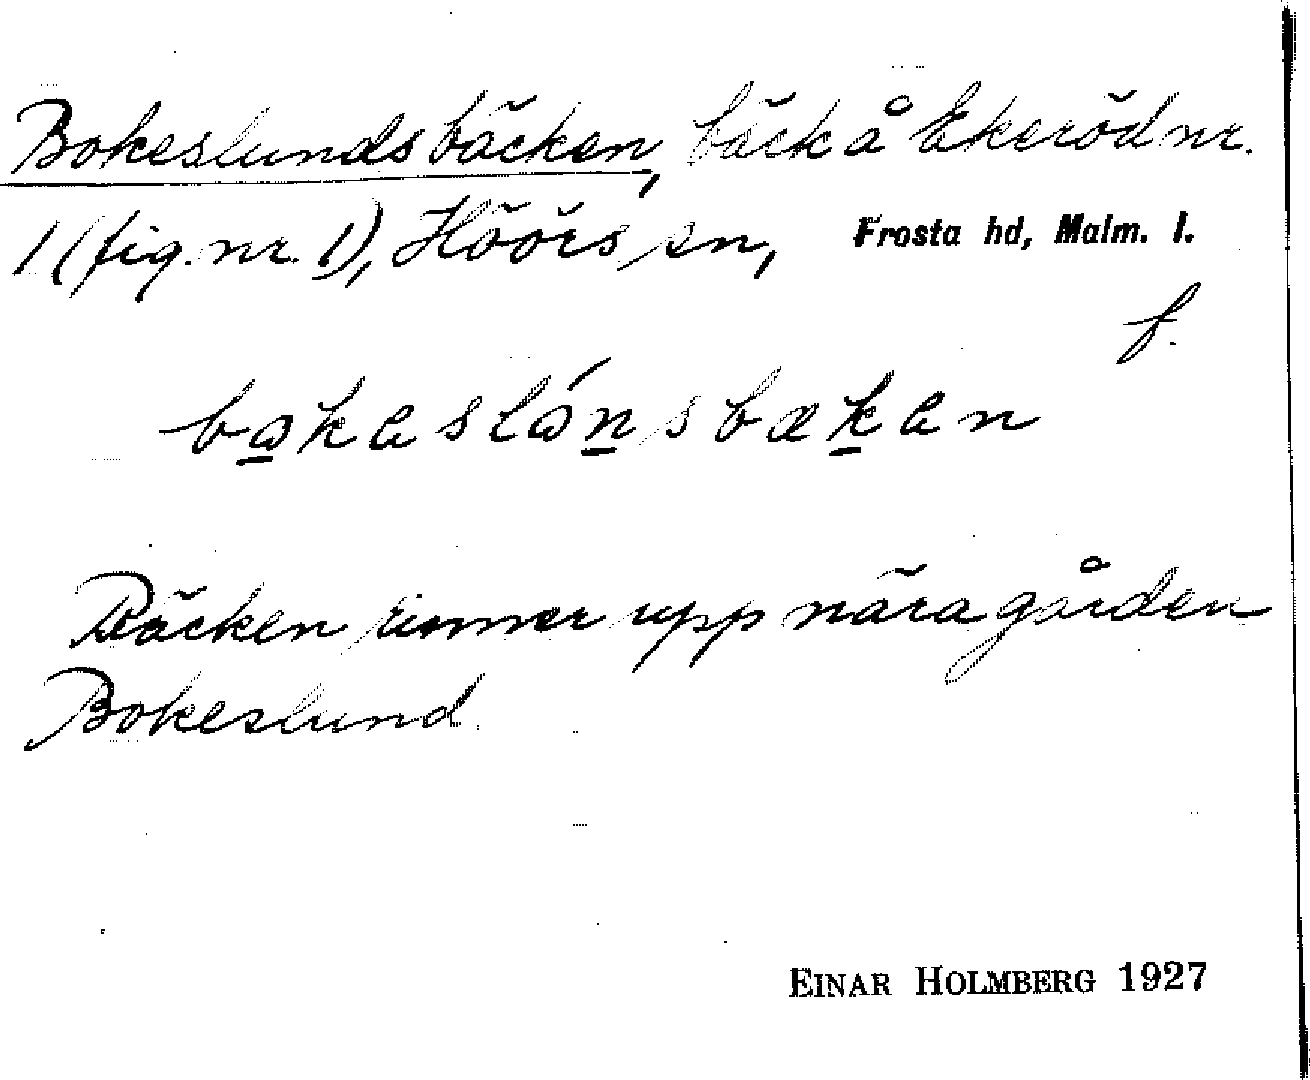 Bokeslundsbäcken, bäck å Ekeröd nr.
1 (fig. nr. 1), Höörs sn, Frosta hd, Malm. l.
f.
Bäcken rinner upp nära gården
Bokeslund.
EINAR HOLMBERG 1927